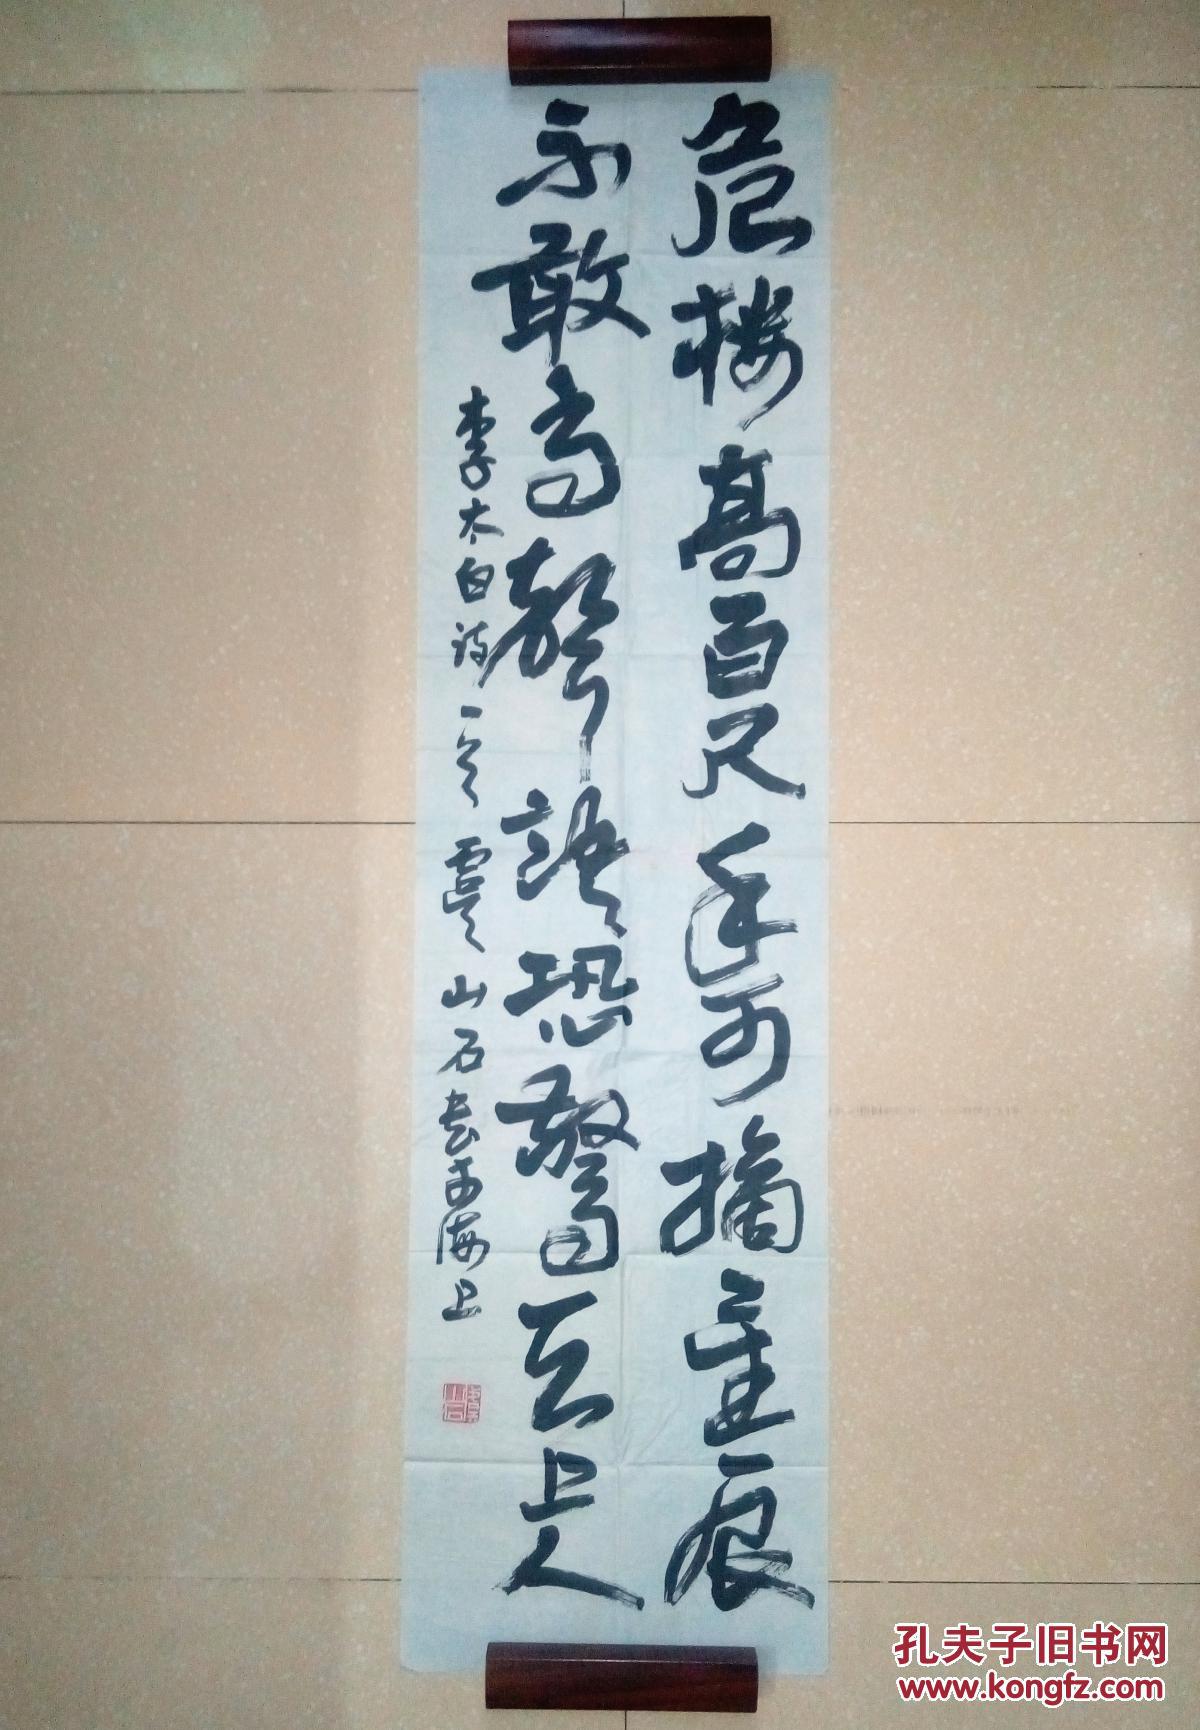 危楼高百尺手可摘星辰
不敢高聲語恐驚天上人
李太白诗一首 虞山石 海上
孔夫子旧书网
www.kongfz.com